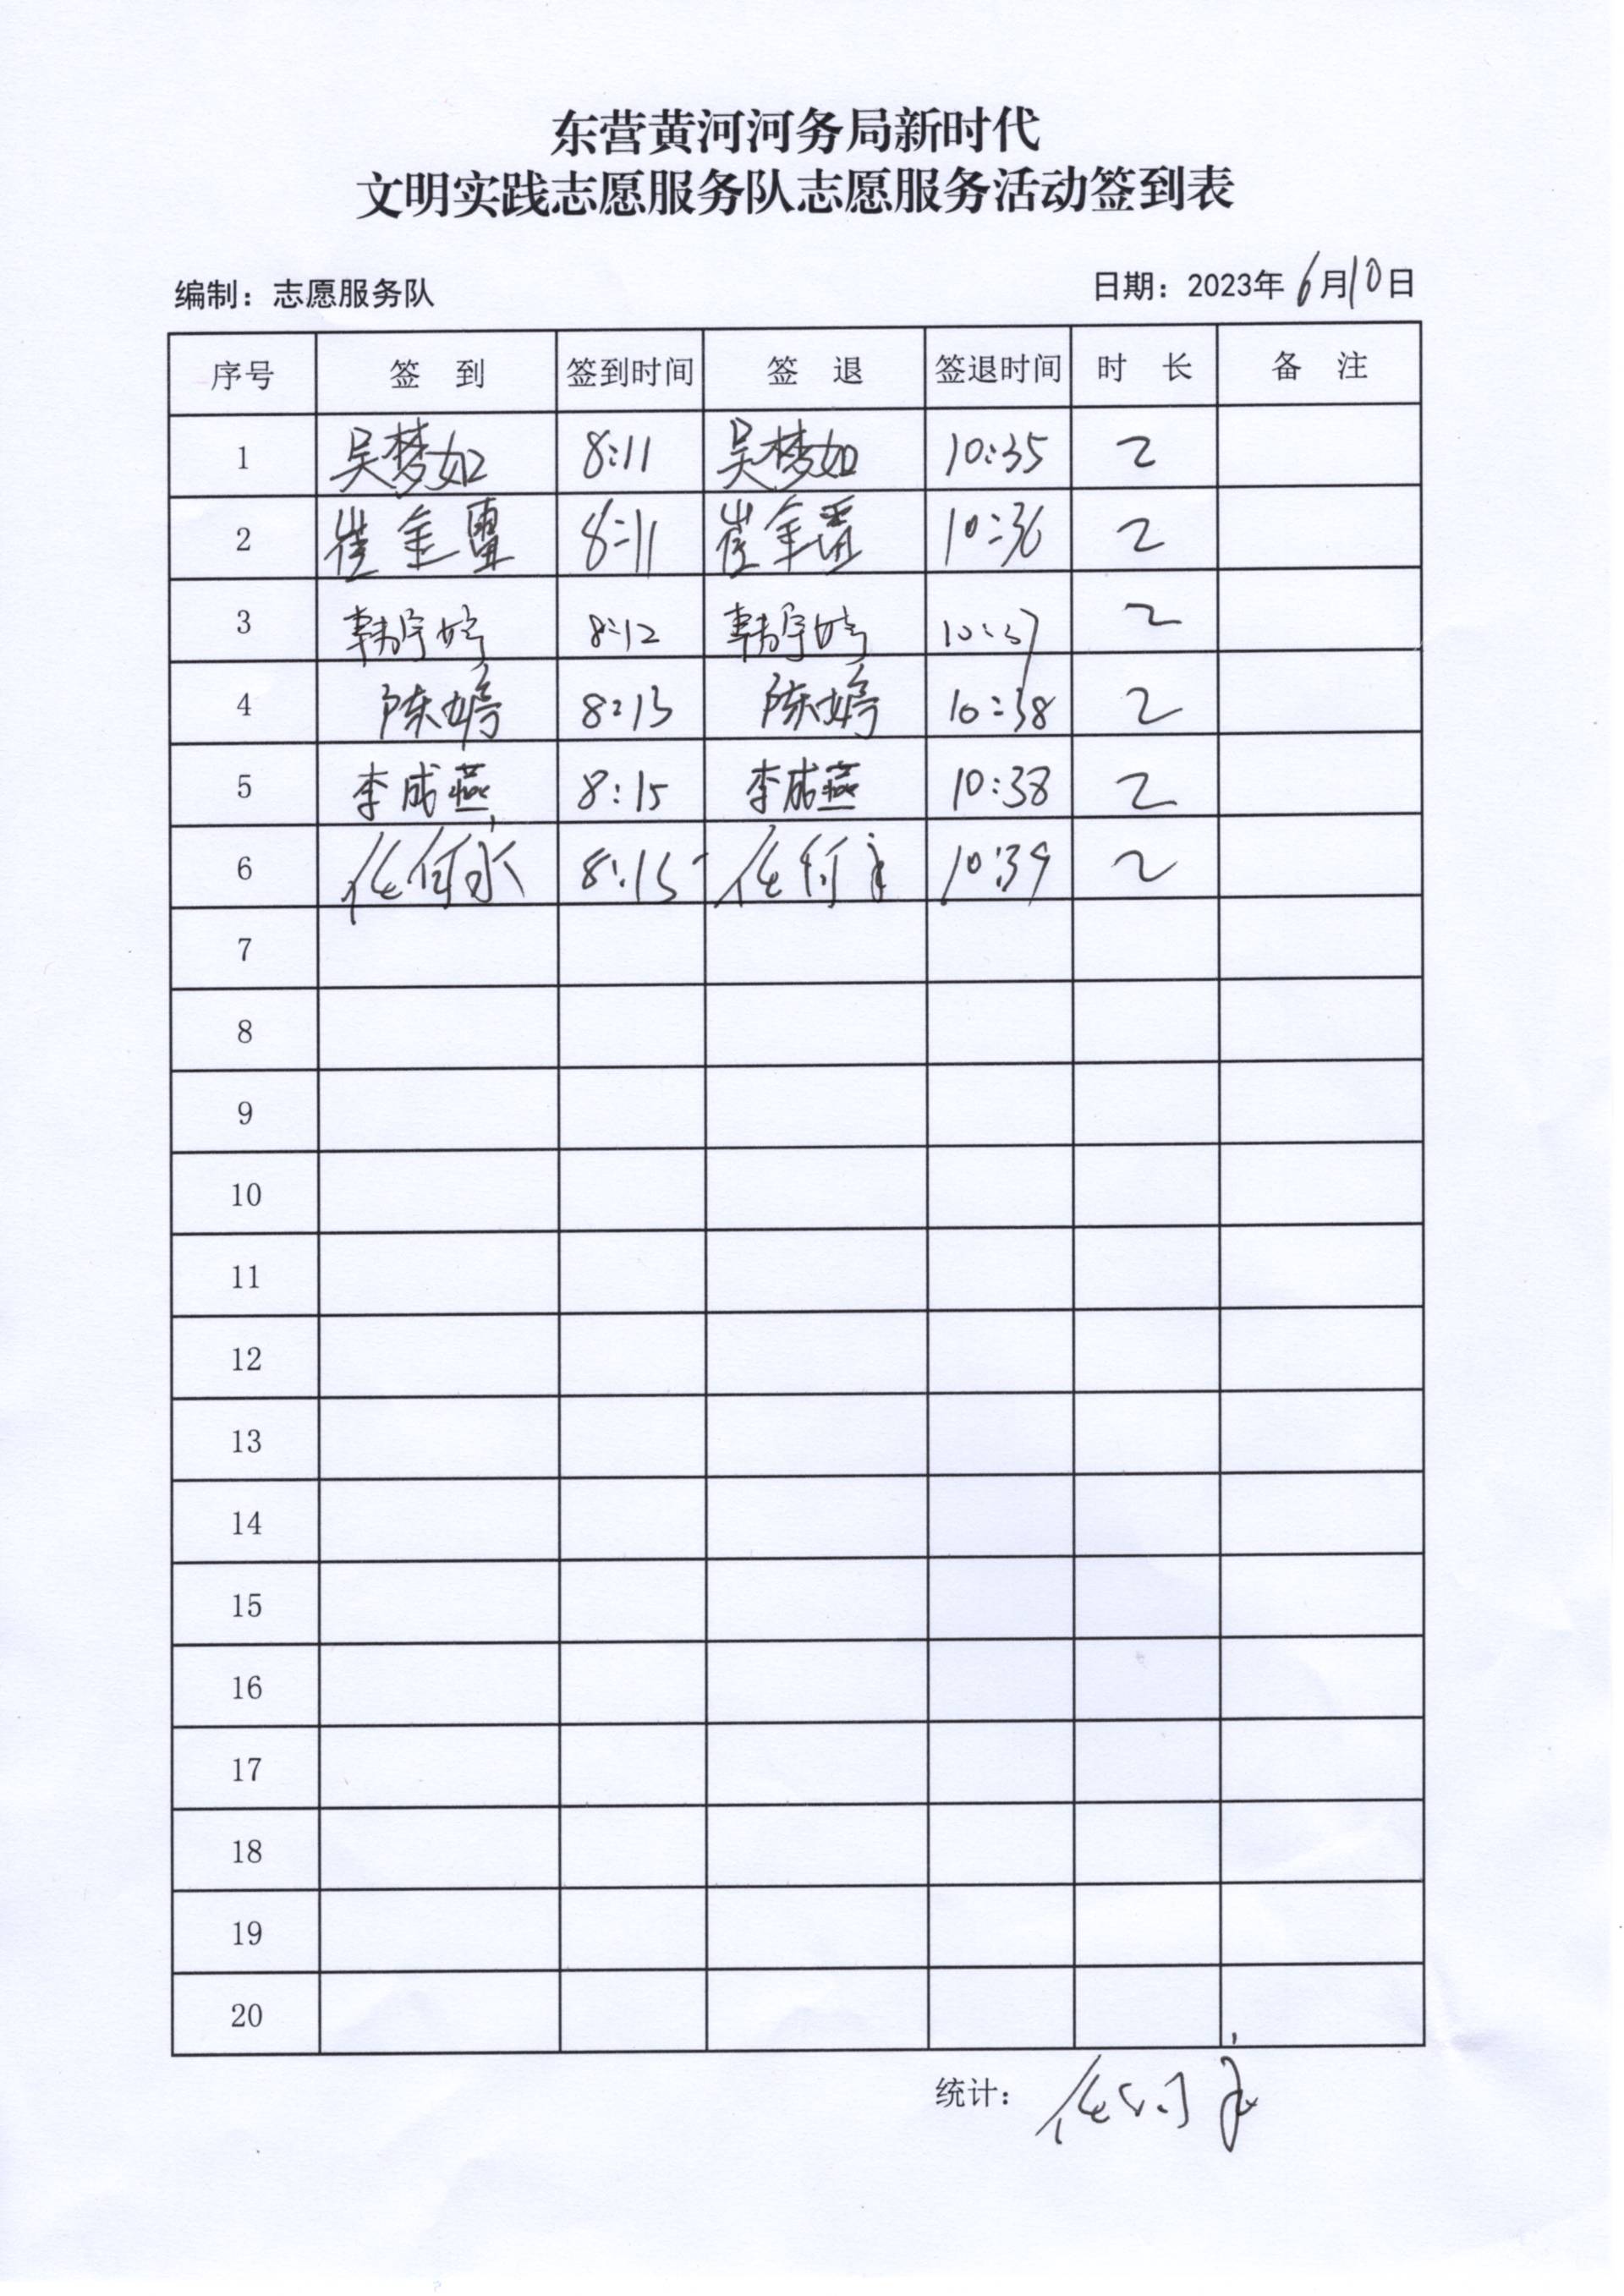 东营黄河河务局新时代
文明实践志愿服务队志愿服务活动签到表
编制：志愿服务队 日期：2023年6月10日
序号 签到 签到时间 签退 签退时间 时长 备注
1 吴梦如 8:11 吴梦如 10:35 2
2 崔金 8:11 崔金 10:36 2
3 韩宇婷 8:12 韩宇婷 10:37 2
4 陈婷 8:13 陈婷 10:38 2
5 李成燕 8:15 李成燕 10:38 2
6 任何 8:15 任何 10:39 2
7
8
9
10
11
12
13
14
15
16
17
18
19
20
统计：